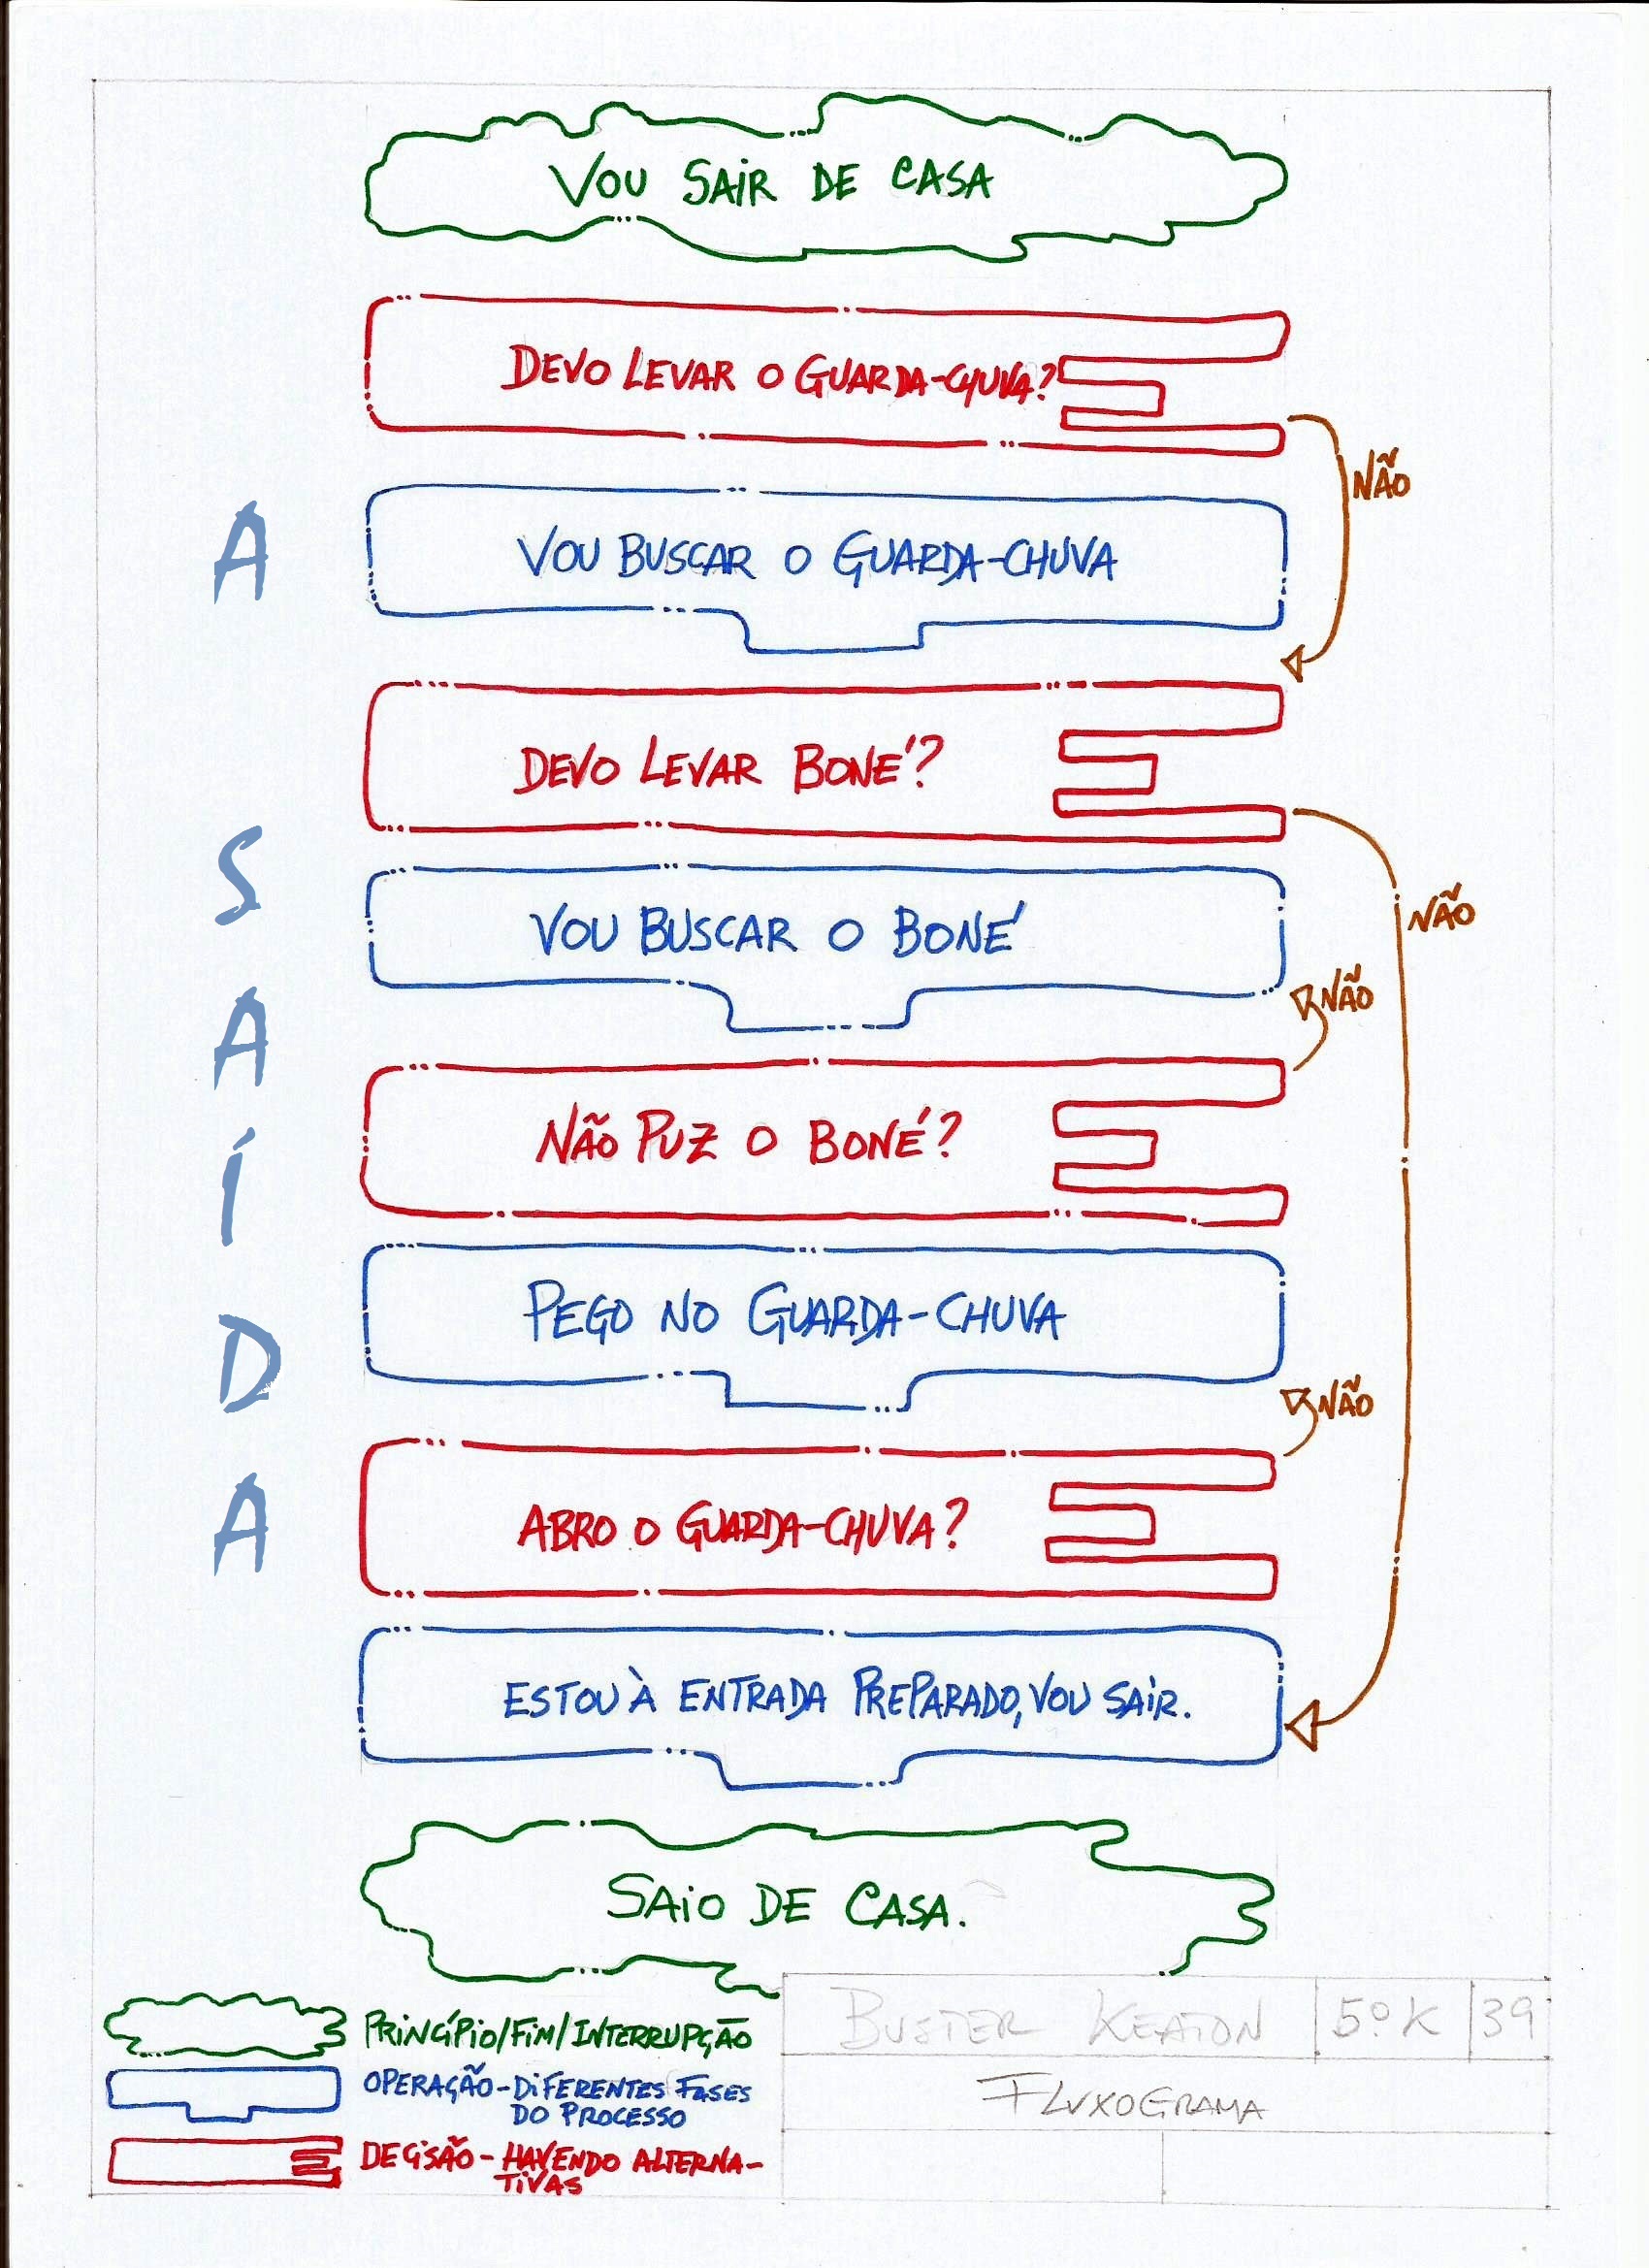 VOU SAIR DE CASA
DEVO LEVAR O GUARDA-CHUVA?
NÃO
VOU BUSCAR O GUARDA-CHUVA
DEVO LEVAR BONÉ?
NÃO
VOU BUSCAR O BONÉ
NÃO
NÃO PUZ O BONÉ?
PEGO NO GUARDA-CHUVA
NÃO
ABRO O GUARDA-CHUVA?
ESTOU À ENTRADA PREPARADO, VOU SAIR.
SAIO DE CASA.
A SAÍDA
PRINCÍPIO/FIM/INTERRUPÇÃO
OPERAÇÃO-DIFERENTES FASES
DO PROCESSO
DECISÃO-HAVENDO ALTERNA-
TIVAS
BUSTER KEATON 5º K 39
FLUXOGRAMA